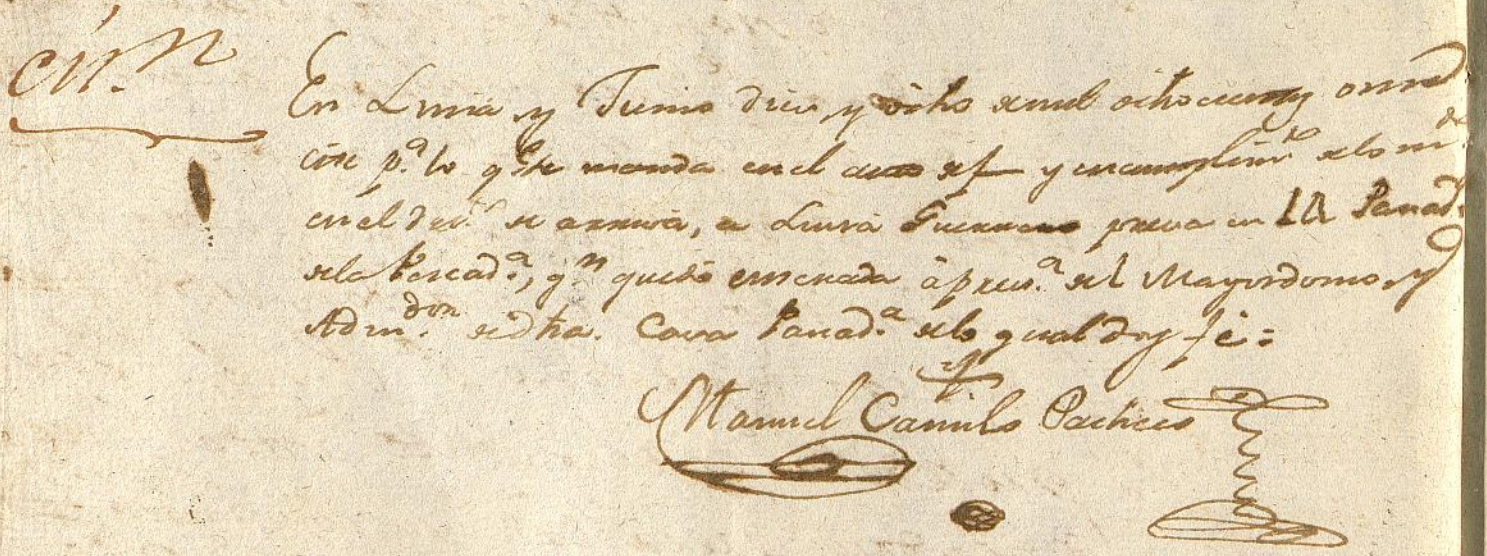 Citn.
En Lima y Junio dies y ocho de mil ochocientos once
cite pa. lo qe. se manda en el auto de f y en cumplimto. de lo mdo.
en el de arriva, a Luisa Guerrero presa en LA Panada.
de la Pescada., qn. quedó enserrada à presa. del Mayordomo y
Admdor. de dha. Casa Panada. de lo qual doy fe=
Manuel Camilo Pacheco